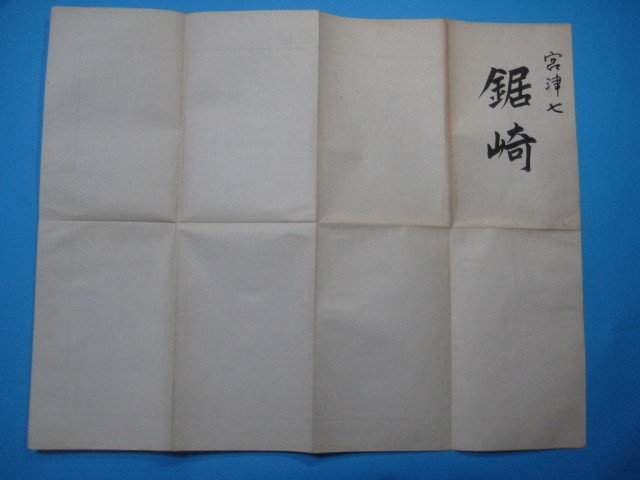 宮津七
鋸崎